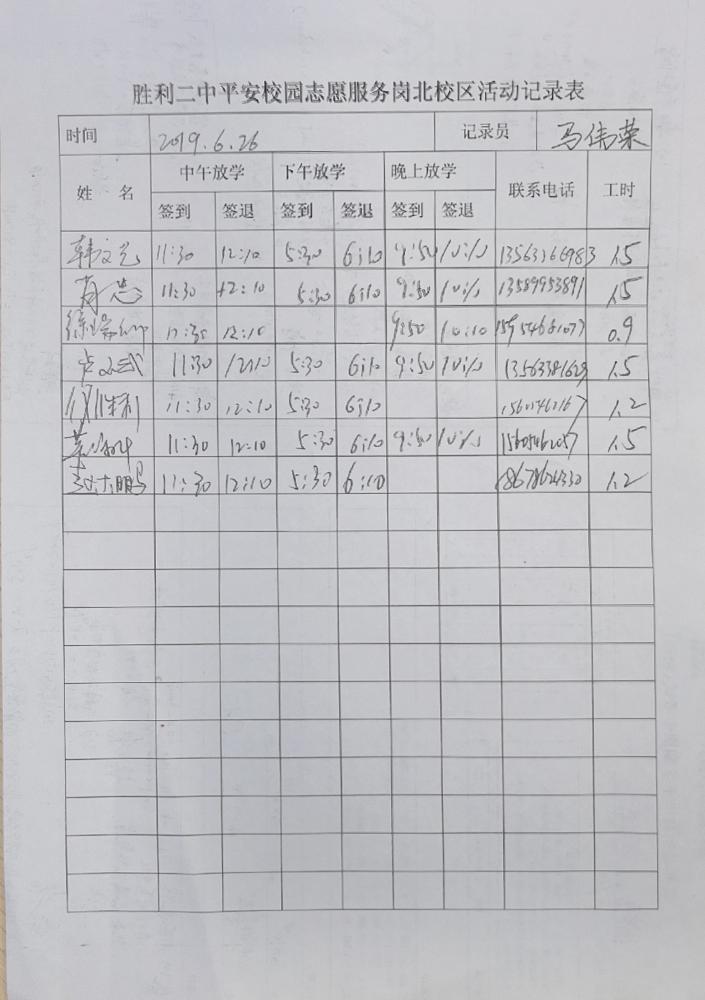 胜利二中平安校园志愿服务岗北校区活动记录表
时间 2019.6.26 记录员 马伟荣
姓 名 中午放学 下午放学 晚上放学 联系电话 工时
签到 签退 签到 签退 签到 签退
韩文 11:30 12:10 5:30 6:10 9:50 10:10 1.5
11:30 12:10 5:30 6:10 9:50 10:10 13589953891 1.5
徐 11:30 12:10 9:50 10:10 0.9
11:30 12:10 5:30 6:10 9:50 10:10 1.5
胜利 11:30 12:10 5:30 6:10 1.2
11:30 12:10 5:30 6:10 9:50 10:10 1.5
鹏 11:30 12:10 5:30 6:10 18678624330 1.2